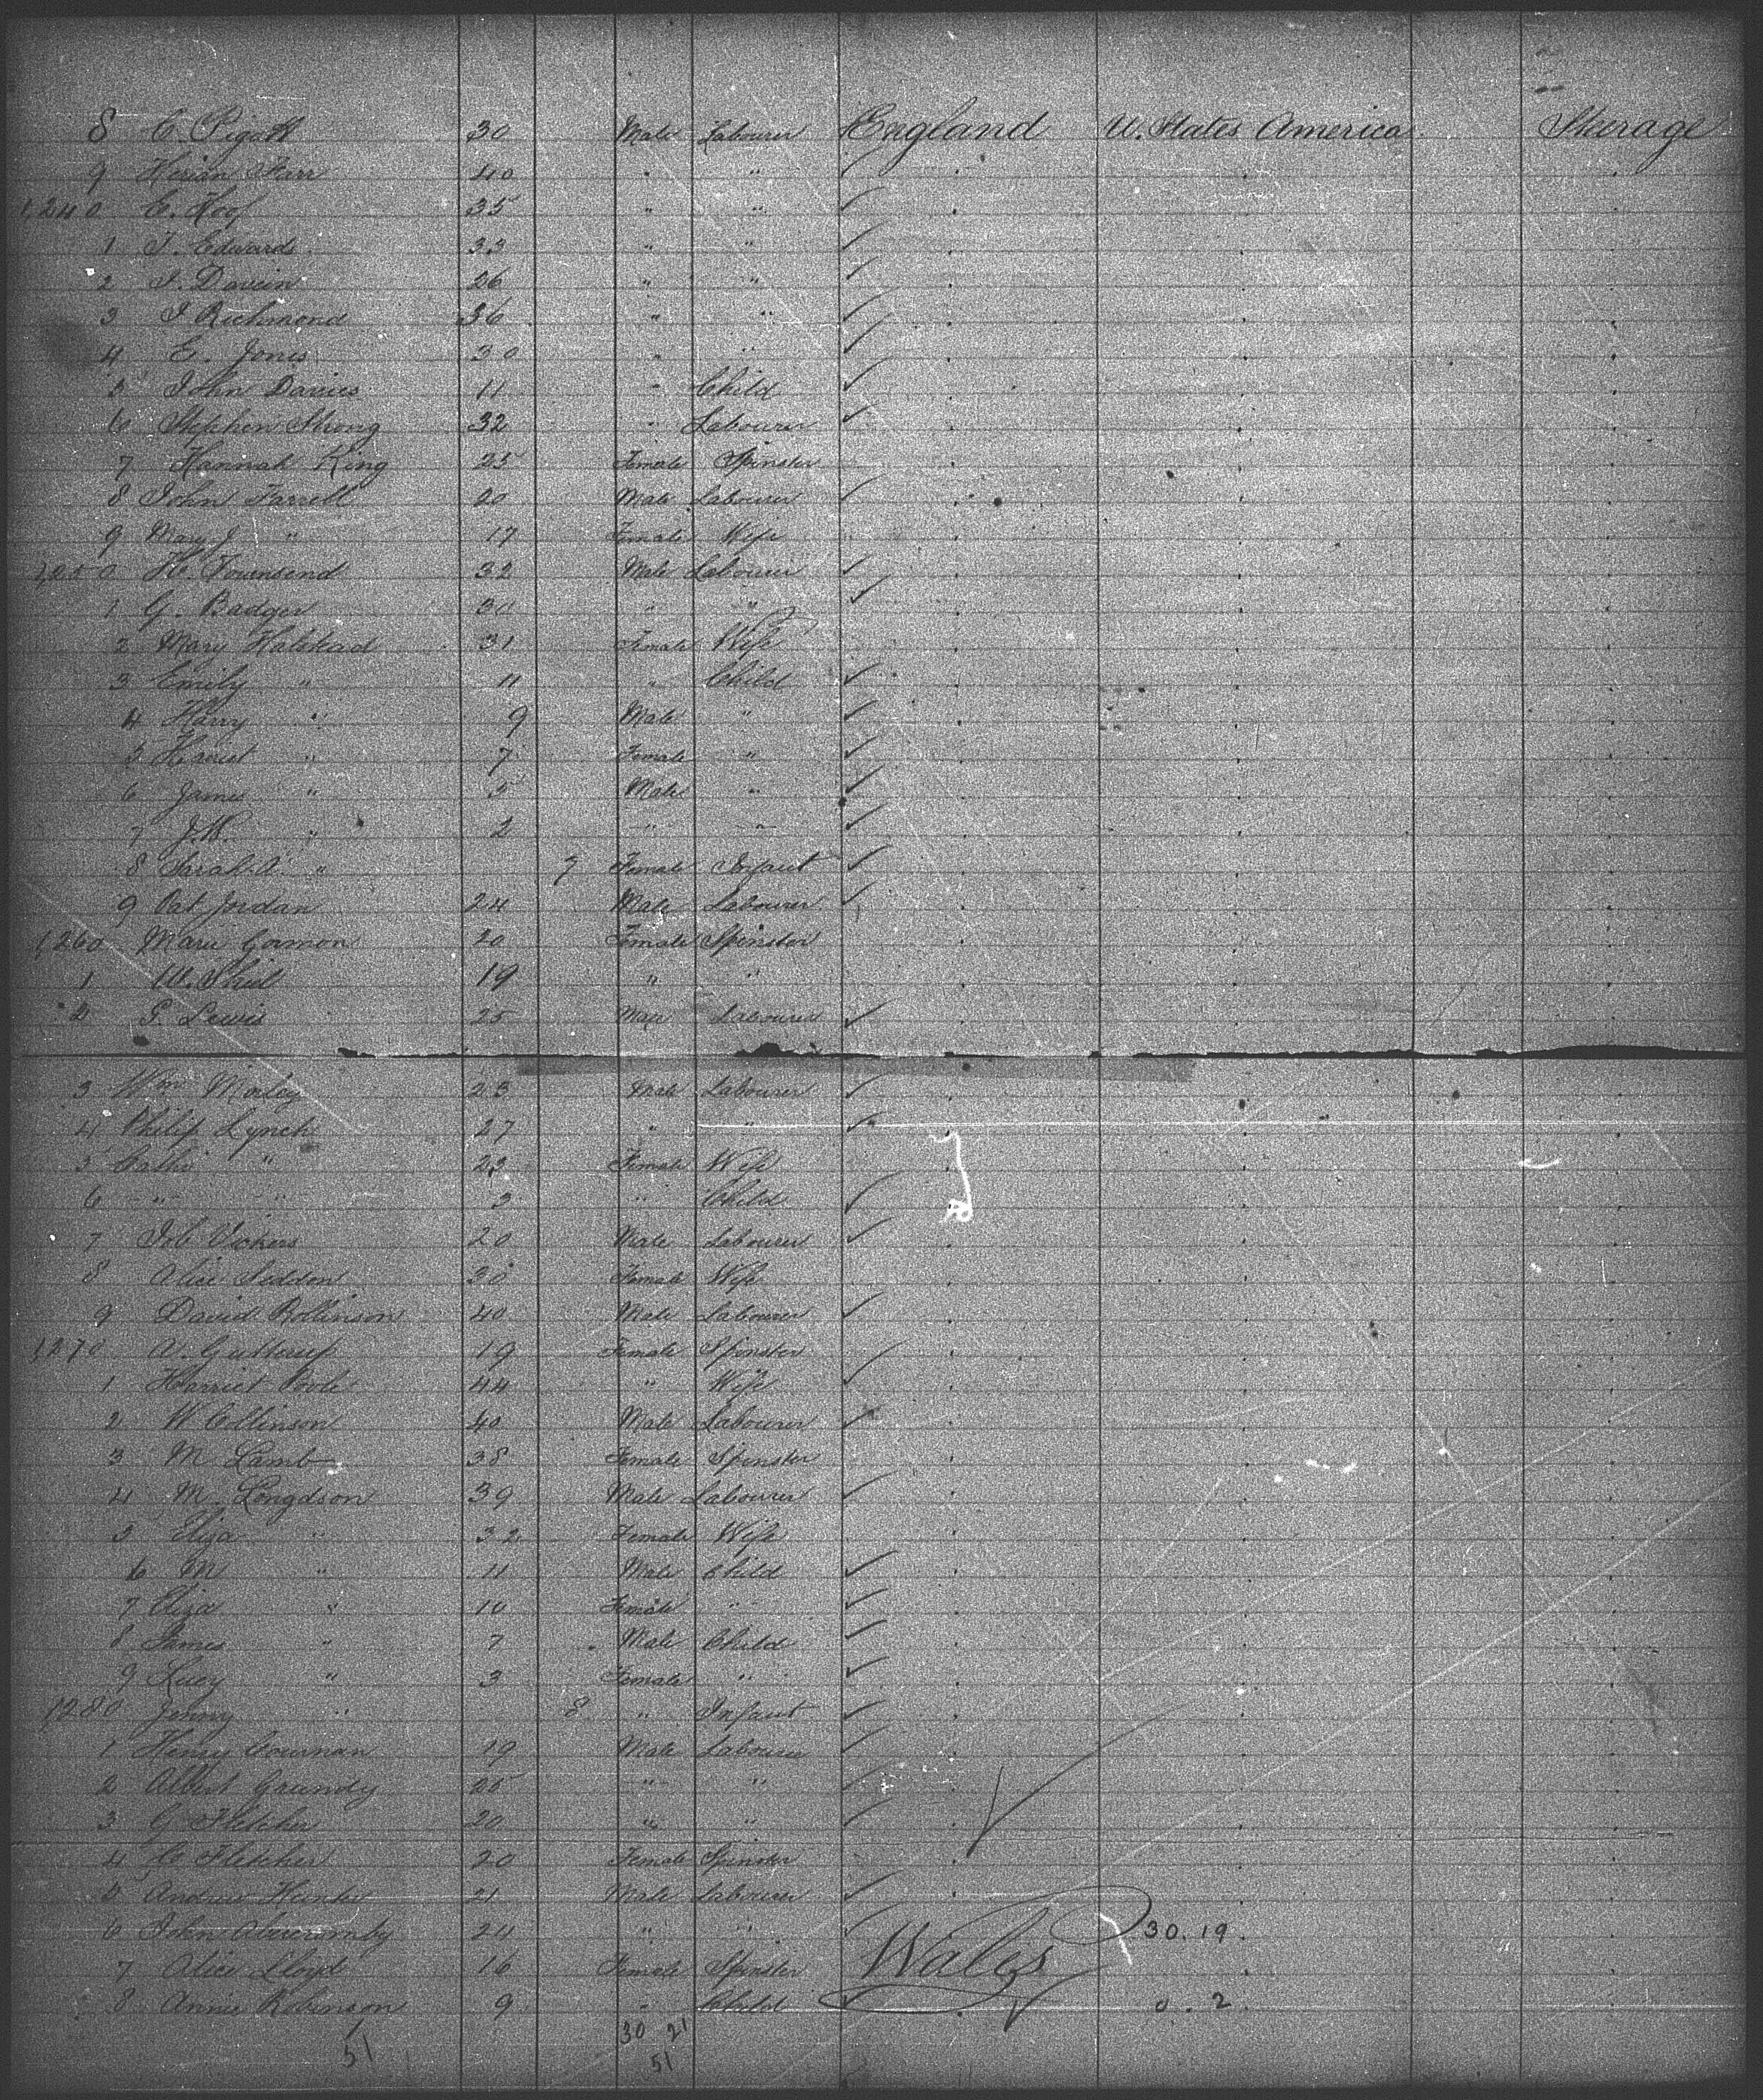 8 C. Pigott 30 Male Labourer England U. States America Sterage
9 Hirian Farr 40 " "
1,240 C. Hoof 35 " "
1 T. Edwards 33 " "
2 J. Davein 26 " "
3 J Richmond 36 " "
4 E. Jones 30 " "
5 John Davies 11 " Child
6 Stephen Strong 32 " Labourer
7 Hannah King 25 Female Spinster
8 John Farrell 20 Male Labourer
9 Mary J " 17 Female Wife
1,250 H. Townsend 32 Male Labourer
1 G. Badger 30 " "
2 Mary Halstead 31 Female Wife
3 Emily " 11 " Child
4 Harry " 9 Male "
5 Harriet " 7 Female "
6 James " 5 Male "
7 J.W. " 2 " "
8 Sarah A " 7 Female Infant
9 Pat Jordan 24 Male Labourer
1,260 Marie Gormon 20 Female Spinster
1 W. Shiel 19 " "
2 G. Lewis 25 Male Labourer
3 Wm Morley 23 Male Labourer
4 Philip Lynch 27 " "
5 Cathe " 23 Female Wife
6 " " 3 " Child
7 Job Vickers 20 Male Labourer
8 Alice Seddon 30 Female Wife
9 David Rollinson 40 Male Labourer
1,270 A. 19 Female Spinster
1 Harriet Poole 44 " Wife
2 W Collinson 40 Male Labourer
3 M Lamb 38 Female Spinster
4 M. Longdson 39 Male Labourer
5 Eliza " 32 Female Wife
6 M " 11 Male Child
7 Eliza " 10 Female "
8 James " 7 Male Child
9 Lucy " 3 Female "
1280 Jenny " 8 " Infant
1 Henry 19 Male Labourer
2 Albert Grundy 25 " "
3 G Fletcher 20 " "
4 C Fletcher 20 Female Spinster
5 Andrew Hunter 21 Male Labourer
6 John Abercromby 24 " " 30.19.
7 Alice Lloyd 16 Female Spinster Wales
8 Annie Robinson 9 " Child 0.2
51 30 21
51